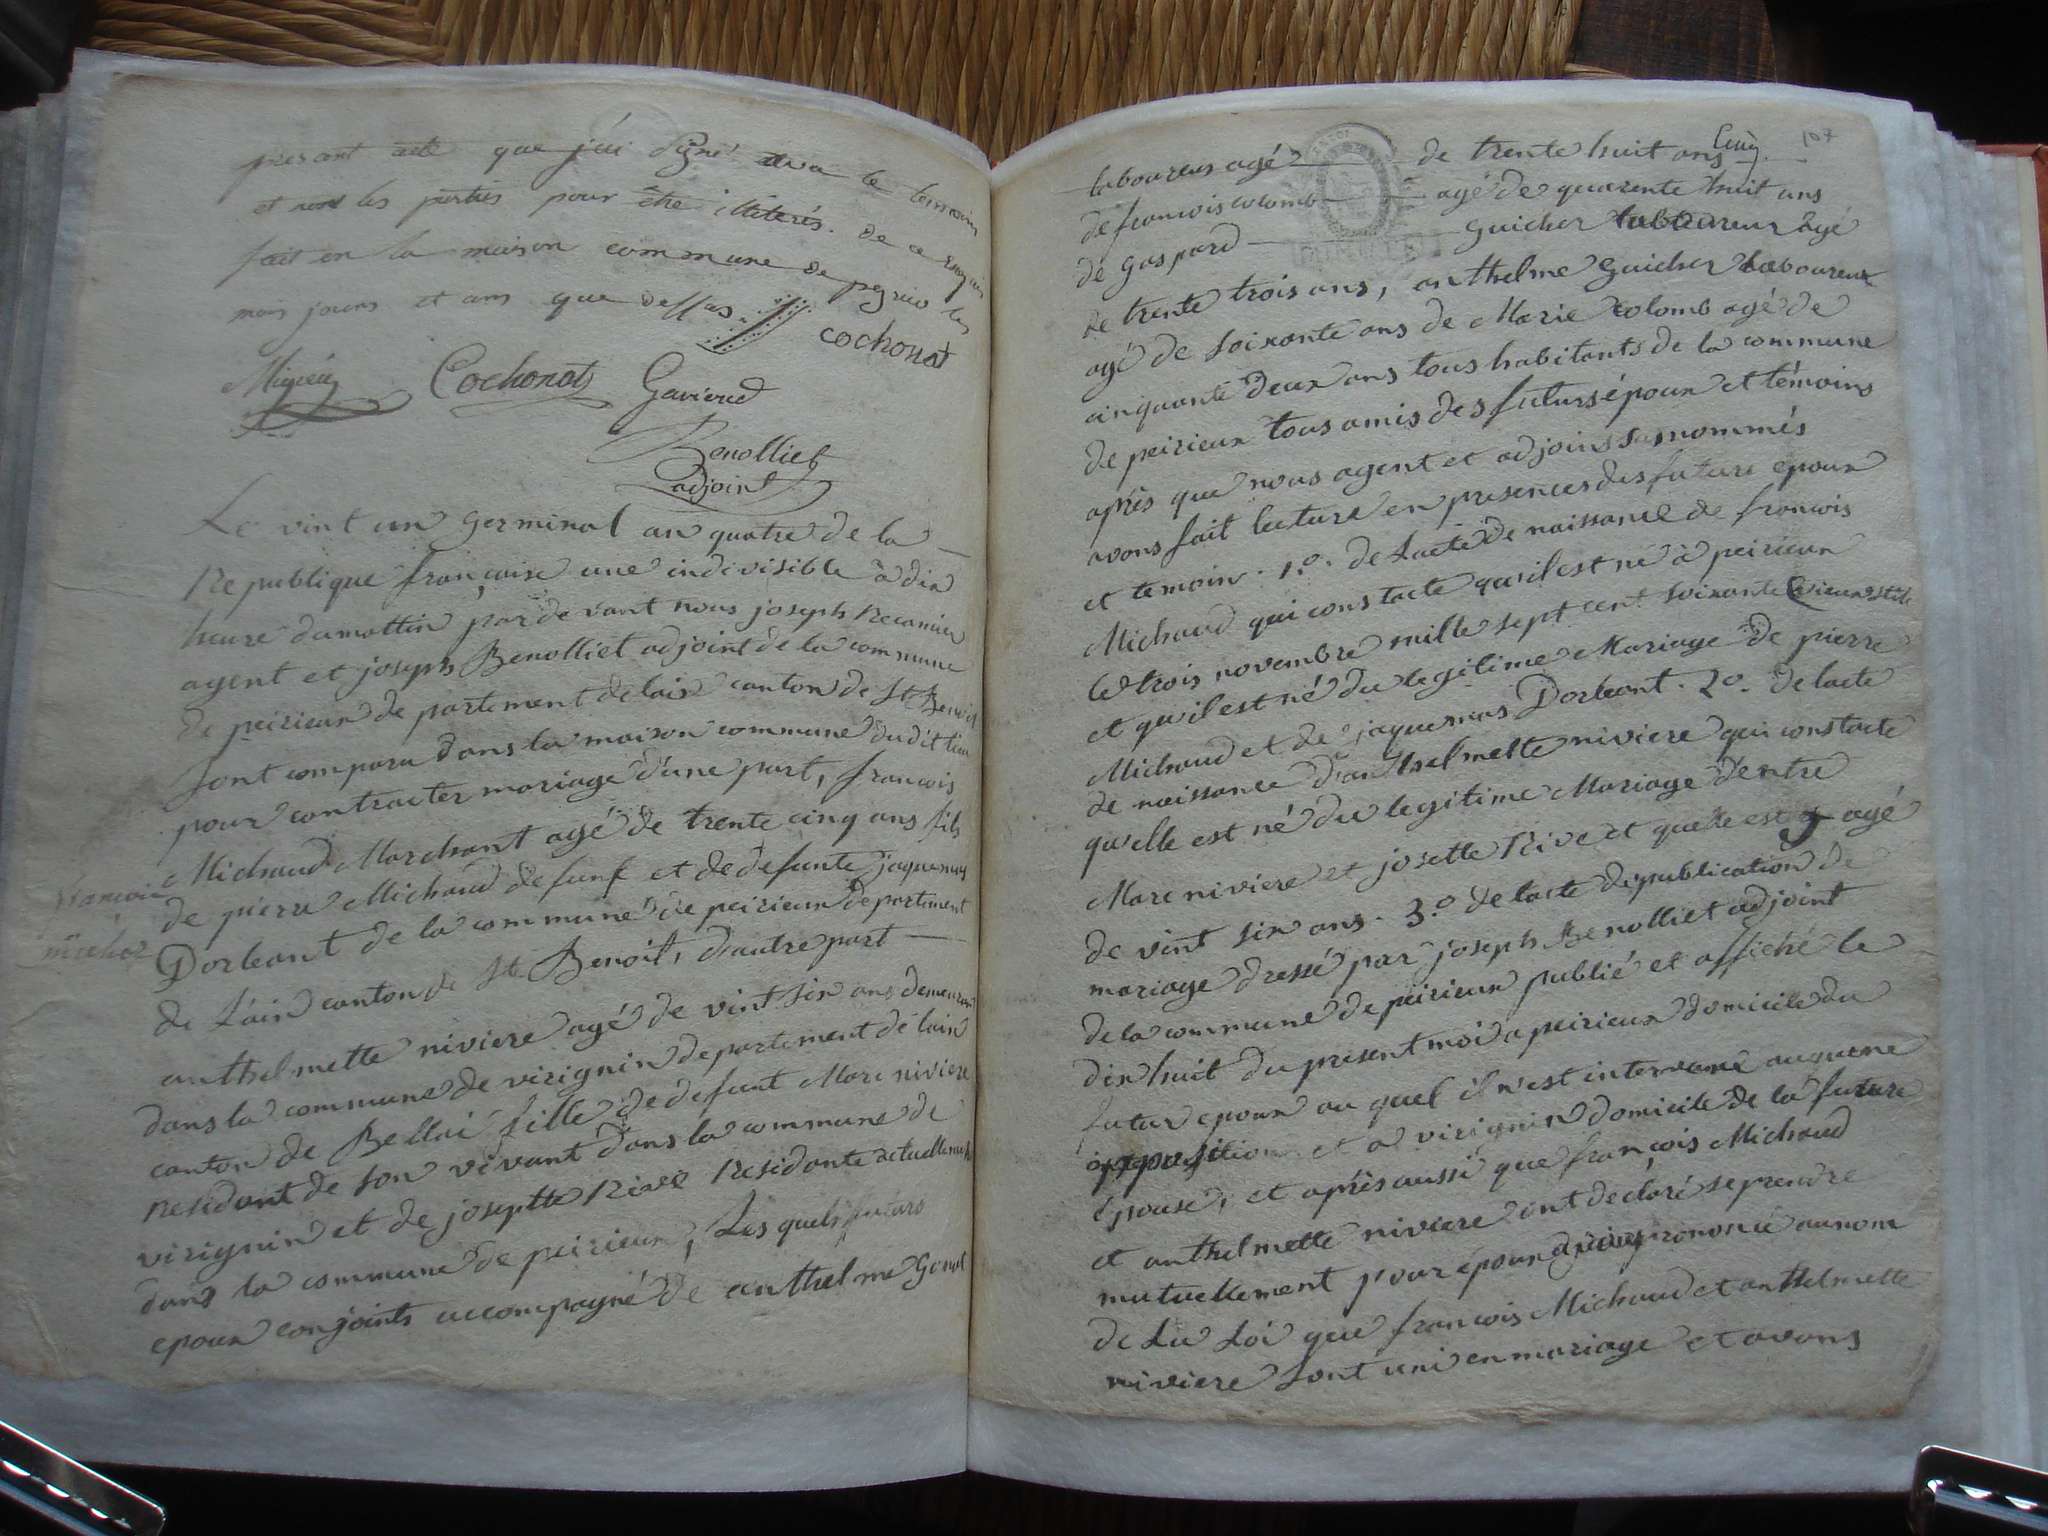 present acte que j'ai signé avec le temoin
et non les parties pour être illiterés. de ce enquis
fait en la maison commune de peyrieu les
mois jours et ans que dessus
cochonat
Cochonat Gavieud
Benolliet
adjoint
Le vint un germinal an quatre de la
Republique francoise une indivisible à dix
heure du mattin par devant nous joseph Recamier
agent et joseph Benolliet adjoint de la commune
de peirieux departement de lain canton de St Benoit
sont comparu dans la maison commune dudit lieu
pour contracter mariage d'une part, francois
Michaud Marchant agé de trente cinq ans fils
de pierre Michaud defunt et de defunte jaquemas
Dorleant de la commune de peirieux departement
de L'ain canton de St Benoit, d'autre part
anthelmette niviere agé de vint six ans demeurant
dans la commune de virignin departement de lain
canton de Bellai fille de defunt Marc niviere
residant de son vivant dans la commune de
virignin et de josephtte Rive residante actuellement
dans la commune de peirieux, Les quels futurs
epoux conjoints accompagné de anthelme Gonat
francoi
michaz
107
Cinq.
laboureur agé de trente huit ans
de francois colomb agé de quarente huit ans
de gaspard guicher laboureur agé
de trente trois ans, anthelme guicher laboureur
agé de soixante ans de Marie colomb agé de
cinquante deux ans tous habitants de la commune
de peirieux tous amis des futurs époux et témoins
après que nous agent et adjoins susnommés
avons fait lecture en presences des futurs epoux
et temoin. 1.º. de Lacte de naissance de francois
Michaud qui constacte qu'il est né à peirieux
le trois novembre mille sept cent soixante vieux stile
et qu'il est né du legitime Mariage de pierre
Michaud et de jaquemas Dorleant. 2º. de lacte
de naissance d'anthelmette niviere qui constacte
qu'elle est né du legitime Mariage dentre
Marc niviere et josette Rive et quelle est agé
de vint six ans. 3.º de lacte depublication de
mariage dressé par joseph Benolliet adjoint
de la commune de peirieux publié et affiché le
dix huit du present moi a peirieux domicile du
futur epoux au quel il n'est intervenue auquene
opposition et a virignin domicile de la future
épouse, et après aussi que françois Michaud
et anthelmette niviere ont declaré se prendre
mutuellement pour époux j'ai prononcé aunom
de La Loi que francois Michaud et anthelmette
niviere sont uni en mariage et avons